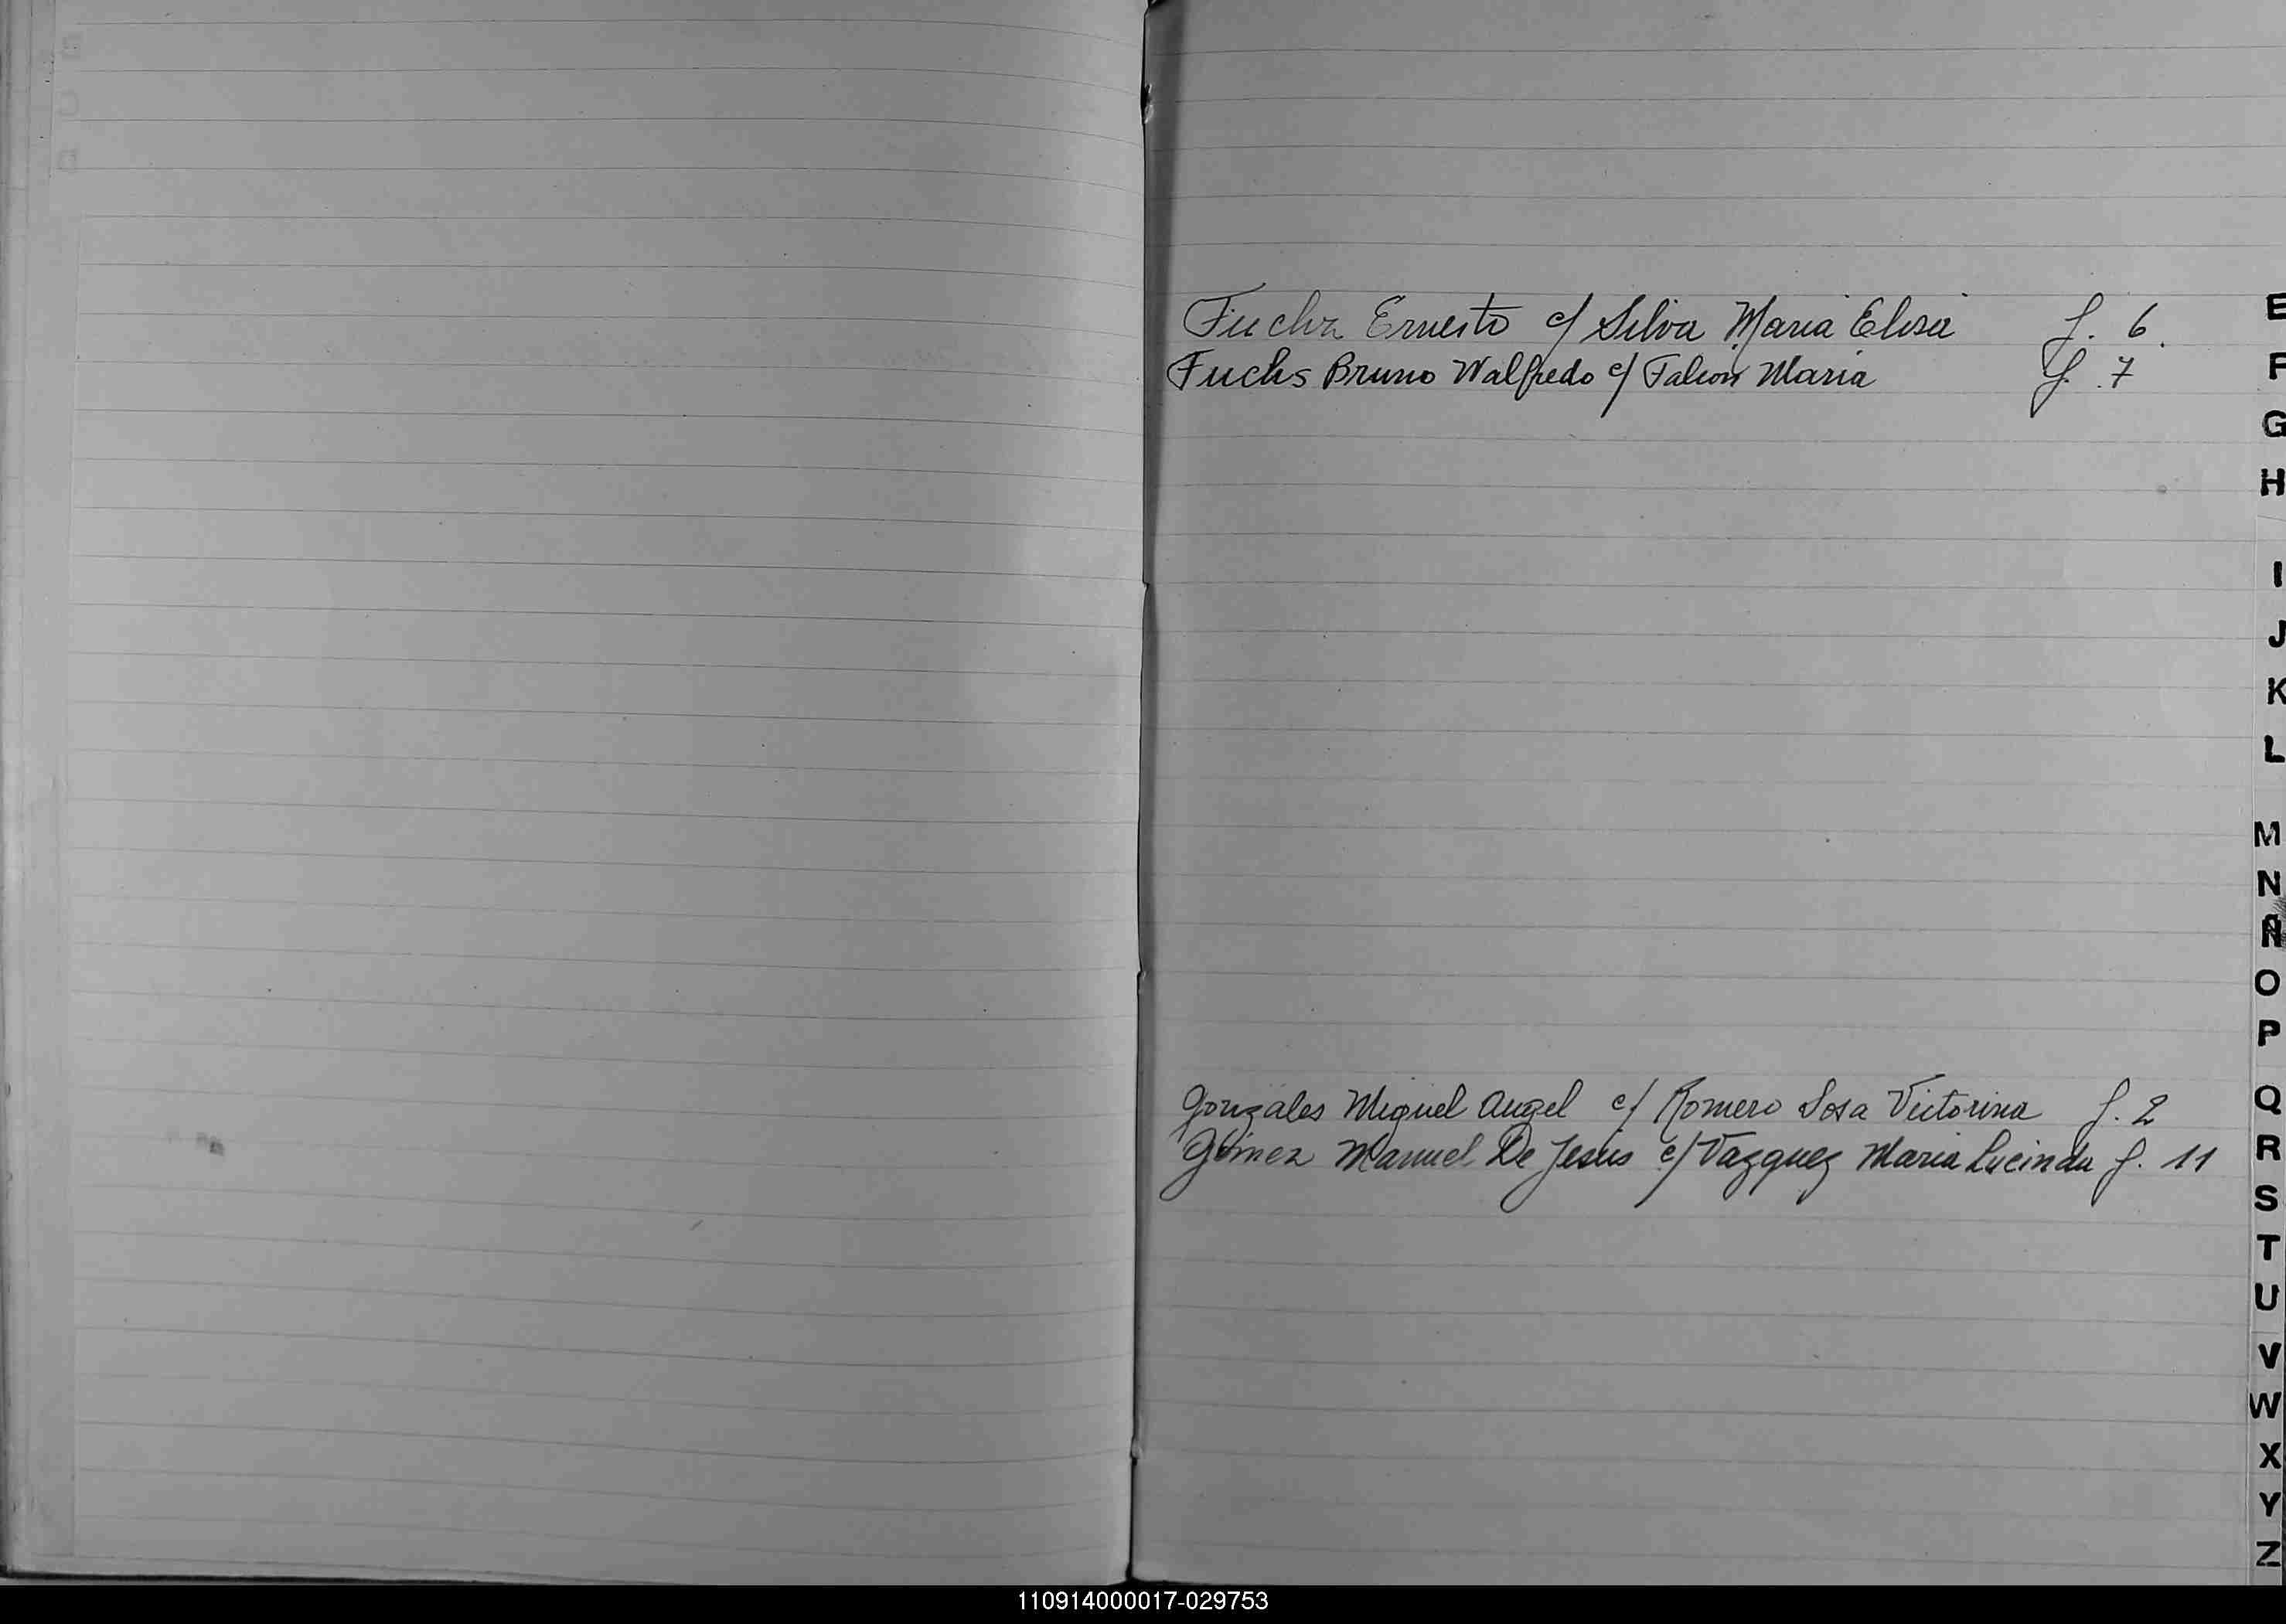 Fuchs Ernesto c/ Silva Maria Elisa f. 6.
Fuchs Bruno Walfredo c/ Falcon Maria f. 7
Gonzales Miguel Angel c/ Romero Sosa Victorina f. 2
Gómez Manuel De Jesus c/ Vazquez Maria Lucinda f. 11
E
F
G
H
I
J
K
L
M
N
Ñ
O
P
Q
R
S
T
U
V
W
X
Y
Z
110914000017-029753